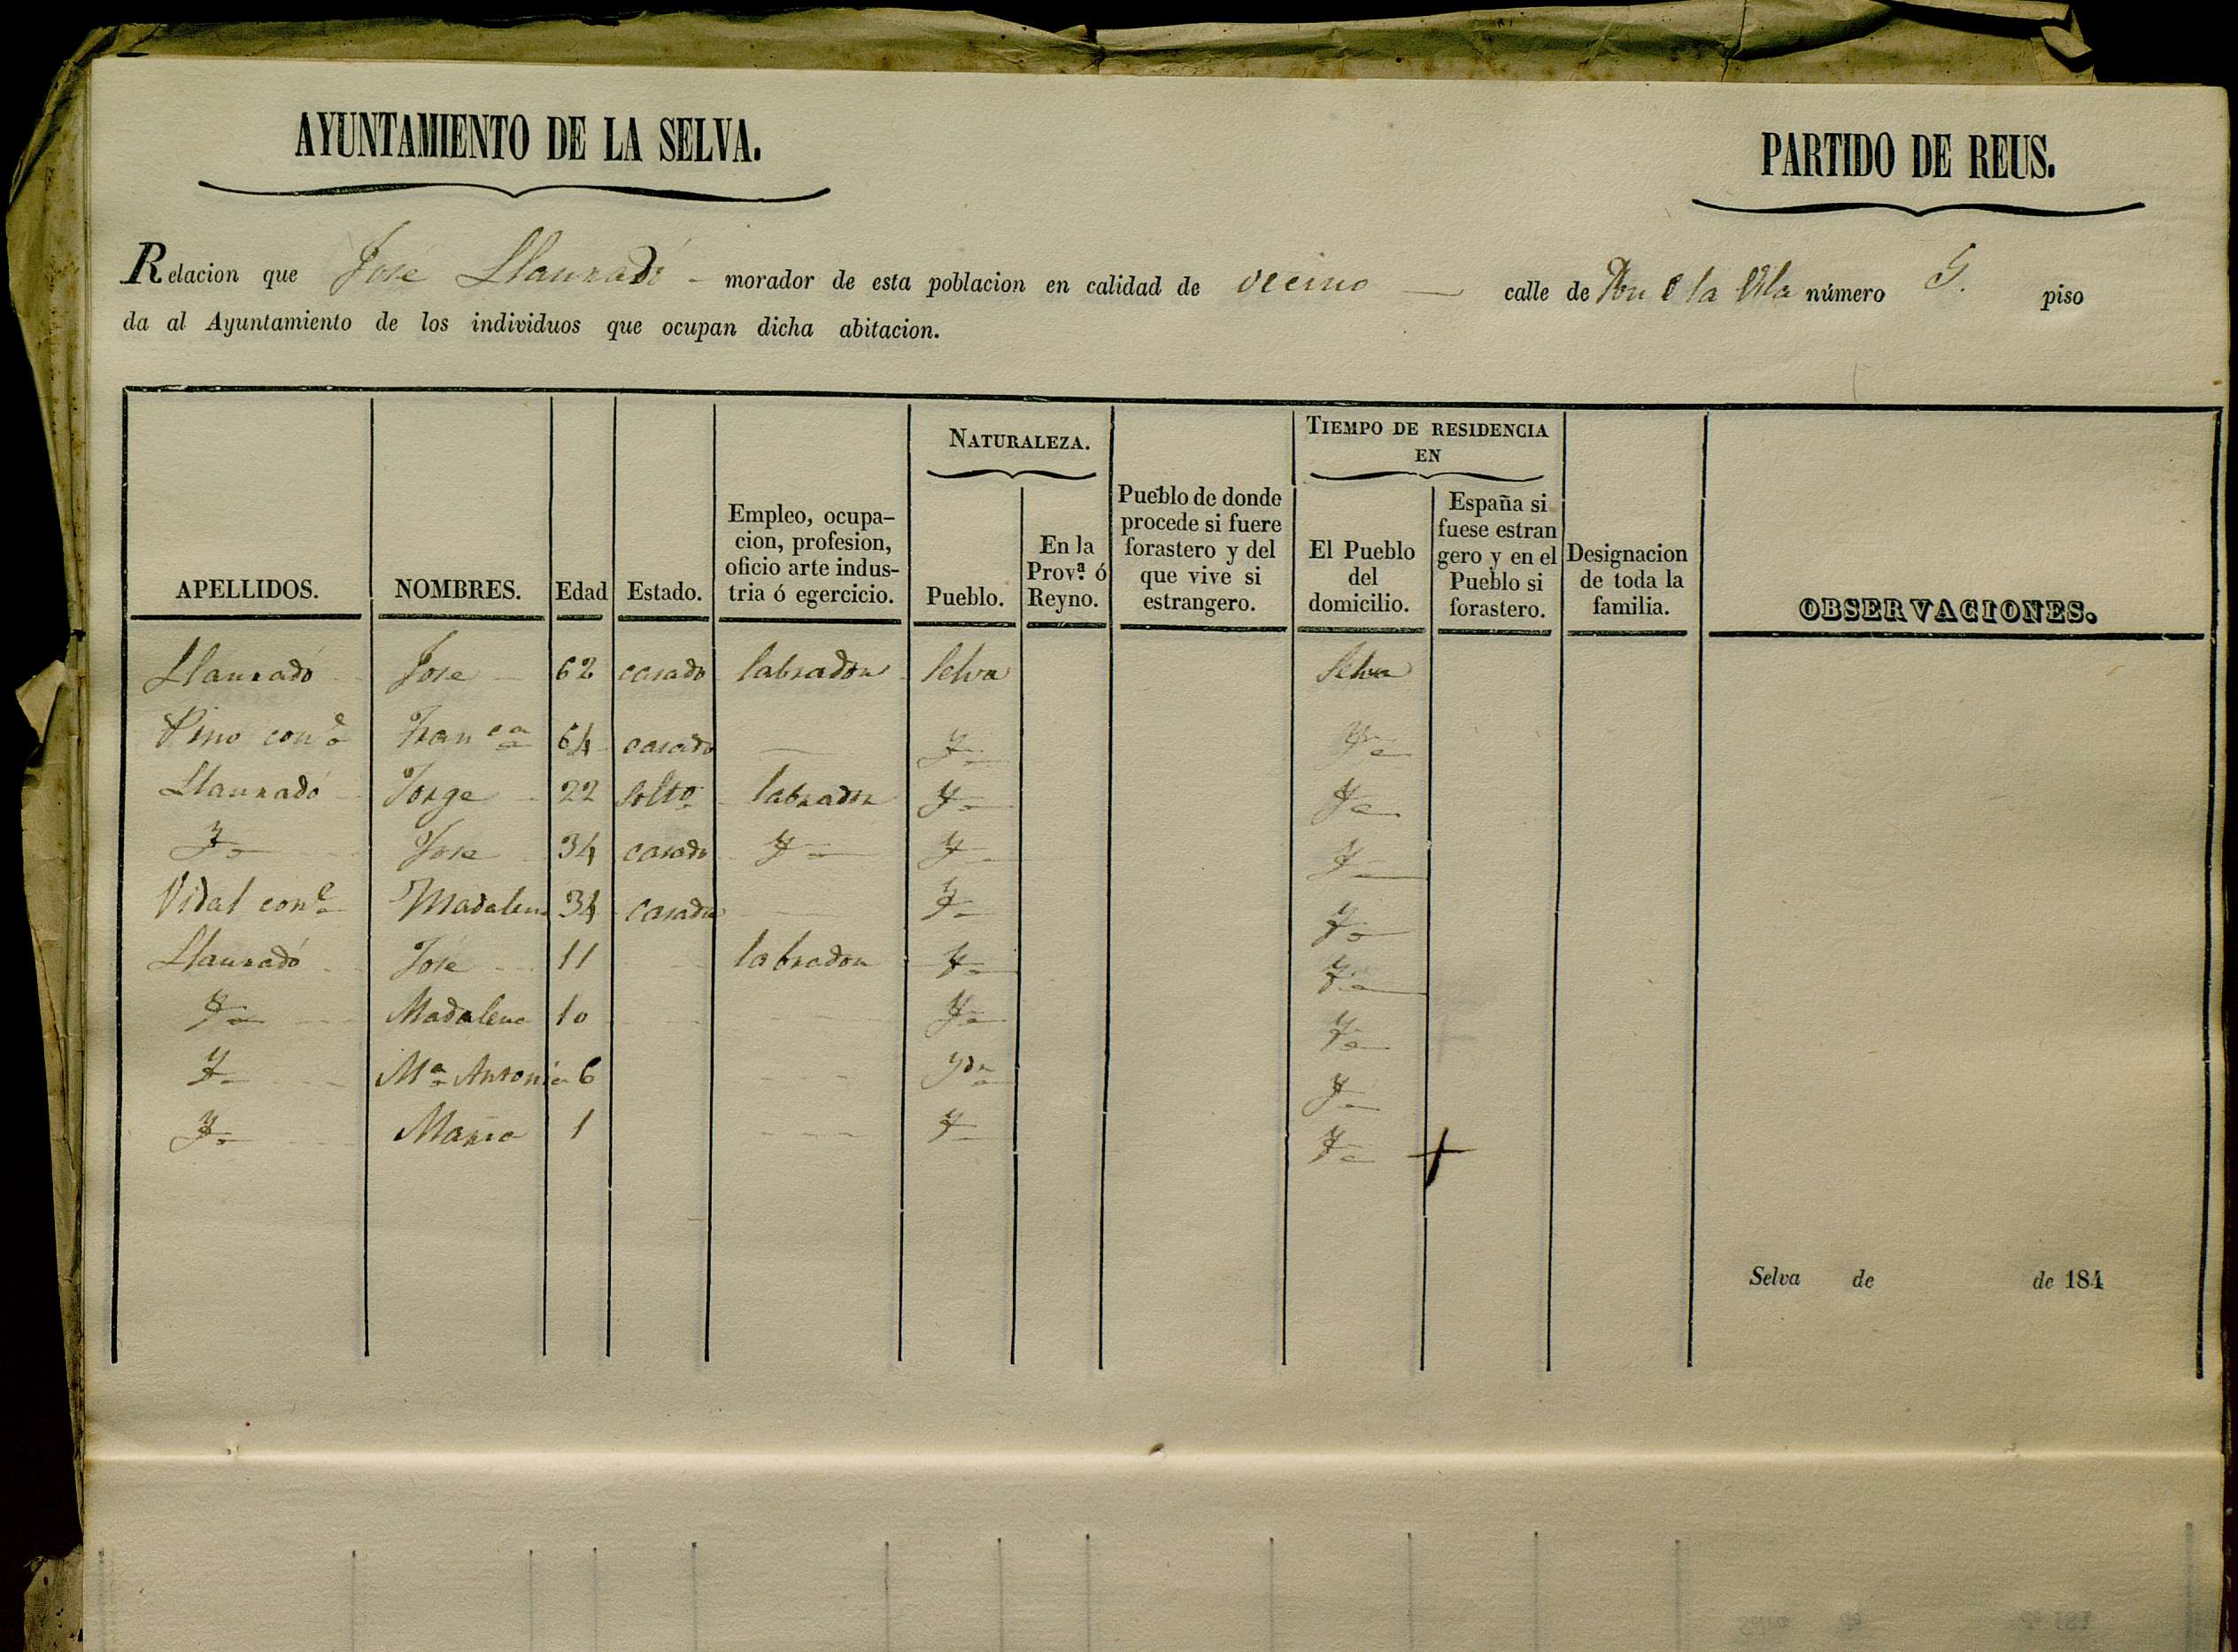 AYUNTAMIENTO DE LA SELVA.
PARTIDO DE REUS.
Relacion que José Llauradó morador de esta poblacion en calidad de vecino calle de la número piso
da al Ayuntamiento de los individuos que ocupan dicha abitacion.
APELLIDOS. NOMBRES. Edad Estado. Empleo, ocupa-cion, profesion, oficio arte indus-tria ó egercicio. NATURALEZA. Pueblo. En la Prov.ª ó Reyno. Pueblo de donde procede si fuere forastero y del que vive si estrangero. TIEMPO DE RESIDENCIA EN El Pueblo del domicilio. España si fuese estran gero y en el Pueblo si forastero. Designacion de toda la familia. OBSERVACIONES.
Llauradó Jose 62 casado labrador Selva Selva
Franca 64 casada Yª Yª
Llauradó Jorge 22 Solto labrador Yª Yª
Yº Jose 34 casado Yº Yª Yª
Vidal Madalena 34 casada Yª Yª
Llauradó José 11 labrador Yª Yª
Yª Madalena 10 Yª Yª
Yª Mª Antonia 6 Ydª Yª
Yª Maria 1 Yª Yª
Selva de de 184